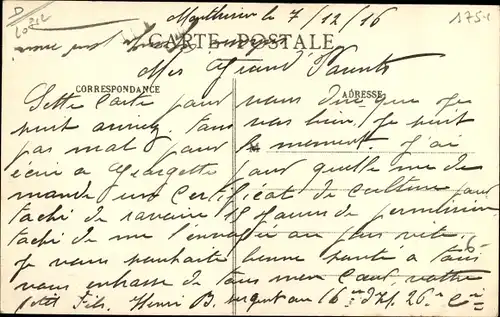 le 7/12/16
CARTE POSTALE
Mes Grand Parents
CORRESPONDANCE
ADRESSE
Sette Carte pour vous dire que Je
suit arrivez. tous vas bien. Je suit
pas mal pour le moment. J'ai
écrie a Georgette pour quelle me de
mande un Certificat de Culture pour
taché de ravoire 15 Jours de permission
taché de me l'envoyée au plus vite.
Je vous souhaite bonne santé a tous
vous embrasse de tous mon Cœur, votre
petit Fils. Henri B. sergent au 16